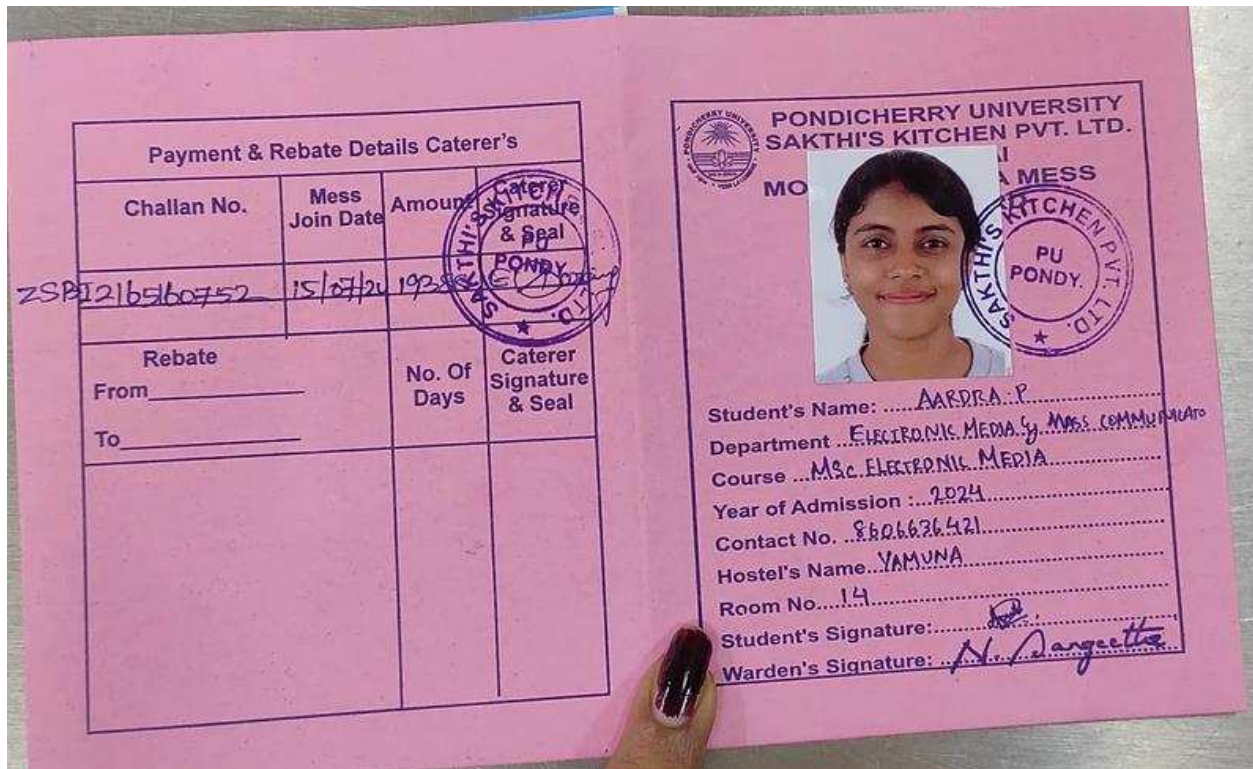 Payment & Rebate Details Caterer's
Challan No.
Mess
Join Date
Amount
Caterer
Signature
& Seal
ZSBI2165160752
15/07/24
SAKTHI'S KITCHEN PVT. LTD.
PU
PONDY.
Rebate
From
To
No. Of
Days
Caterer
Signature
& Seal
PONDICHERRY UNIVERSITY
SAKTHI'S KITCHEN PVT. LTD.
MESS
PONDICHERRY UNIVERSITY
SAKTHI'S KITCHEN PVT. LTD.
PU
PONDY.
Student's Name: AARDRA. P
Department ELECTRONIC MEDIA & MASS COMMUNICATO
Course MSc ELECTRONIC MEDIA
Year of Admission : 2024
Contact No. 8606636421
Hostel's Name YAMUNA
Room No. 14
Student's Signature:
Warden's Signature: N. Sangeetha